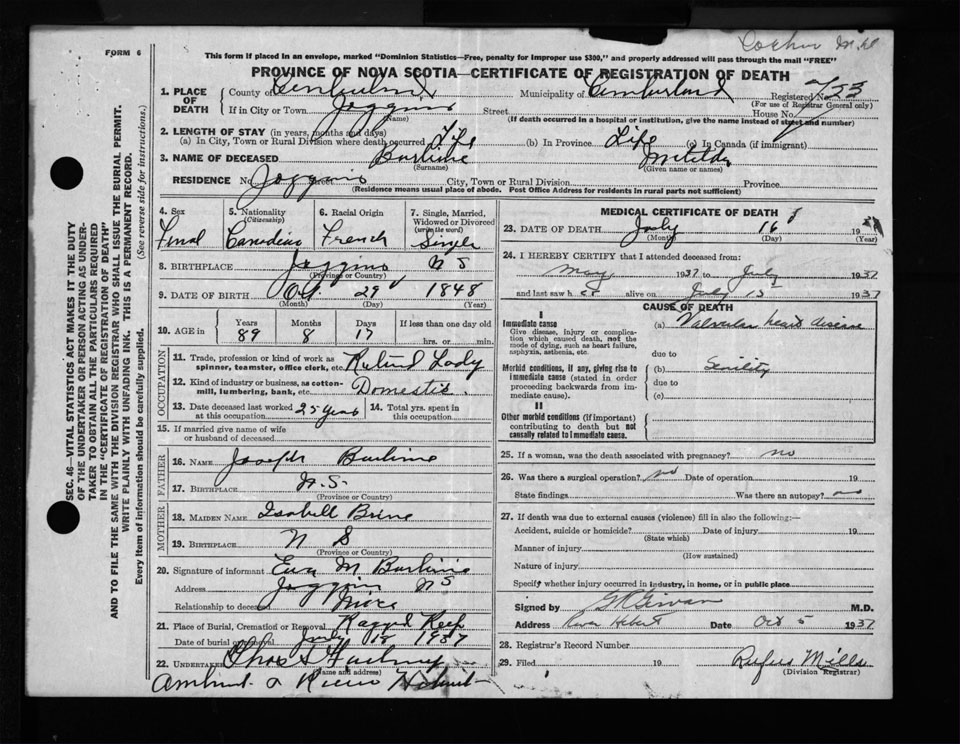 FORM 6
This form if placed in an envelope, marked "Dominion Statistics—Free, penalty for improper use $300," and properly addressed will pass through the mail "FREE"
PROVINCE OF NOVA SCOTIA—CERTIFICATE OF REGISTRATION OF DEATH
1. PLACE OF DEATH
County of Municipality of Cumberland Registered No.
(For use of Registrar General only)
If in City or Town Joggins Street House No.
(Name) (If death occurred in a hospital or institution, give the name instead of street and number)
2. LENGTH OF STAY (in years, months and days)
(a) In City, Town or Rural Division where death occurred Life (b) In Province Life (c) In Canada (if immigrant)
3. NAME OF DECEASED Matilda
(Surname) (Given name or names)
RESIDENCE No. Joggins Street City, Town or Rural Division Province
(Residence means usual place of abode. Post Office Address for residents in rural parts not sufficient)
4. Sex 5. Nationality (Citizenship) 6. Racial Origin 7. Single, Married, Widowed or Divorced (write the word)
Canadian French Single
8. BIRTHPLACE Joggins N S
(Province or Country)
9. DATE OF BIRTH Oct. 29 1848
(Month) (Day) (Year)
10. AGE in Years Months Days If less than one day old
89 8 17 hrs. or min.
OCCUPATION
11. Trade, profession or kind of work as spinner, teamster, office clerk, etc. Retired Lady
12. Kind of industry or business, as cotton-mill, lumbering, bank, etc. Domestic
13. Date deceased last worked at this occupation 25 years 14. Total yrs. spent in this occupation
15. If married give name of wife or husband of deceased
FATHER
16. NAME Joseph
17. BIRTHPLACE N.S.
(Province or Country)
MOTHER
18. MAIDEN NAME Isabell Brine
19. BIRTHPLACE N S
(Province or Country)
20. Signature of informant M
Address Joggins N S
Relationship to deceased
21. Place of Burial, Cremation or Removal Ragged Reef
Date of burial or removal July 18 1937
22. UNDERTAKER
(Name and address)
Amherst & River Hebert
MEDICAL CERTIFICATE OF DEATH
23. DATE OF DEATH July 16 19
(Month) (Day) (Year)
24. I HEREBY CERTIFY that I attended deceased from:
May 1937 to July 1937
and last saw her alive on July 15 1937
CAUSE OF DEATH
I
Immediate cause
Give disease, injury or complication which caused death, not the mode of dying, such as heart failure, asphyxia, asthenia, etc.
(a) Valvular heart disease
due to
Morbid conditions, if any, giving rise to immediate cause (stated in order proceeding backwards from immediate cause).
(b) Senility
due to
(c)
II
Other morbid conditions (if important) contributing to death but not causally related to immediate cause.
25. If a woman, was the death associated with pregnancy? no
26. Was there a surgical operation? no Date of operation 19
State findings Was there an autopsy? no
27. If death was due to external causes (violence) fill in also the following:—
Accident, suicide or homicide? Date of injury 19
(State which)
Manner of injury
(How sustained)
Nature of injury
Specify whether injury occurred in industry, in home, or in public place
Signed by M.D.
Address River Hebert Date Oct 5 1937
28. Registrar's Record Number
29. Filed 19 Rufus Mills
(Division Registrar)
SEC. 46—VITAL STATISTICS ACT MAKES IT THE DUTY
OF THE UNDERTAKER OR PERSON ACTING AS UNDER-
TAKER TO OBTAIN ALL THE PARTICULARS REQUIRED
IN THE "CERTIFICATE OF REGISTRATION OF DEATH"
AND TO FILE THE SAME WITH THE DIVISION REGISTRAR WHO SHALL ISSUE THE BURIAL PERMIT.
WRITE PLAINLY WITH UNFADING INK. THIS IS A PERMANENT RECORD.
Every item of information should be carefully supplied. (See reverse side for instructions.)